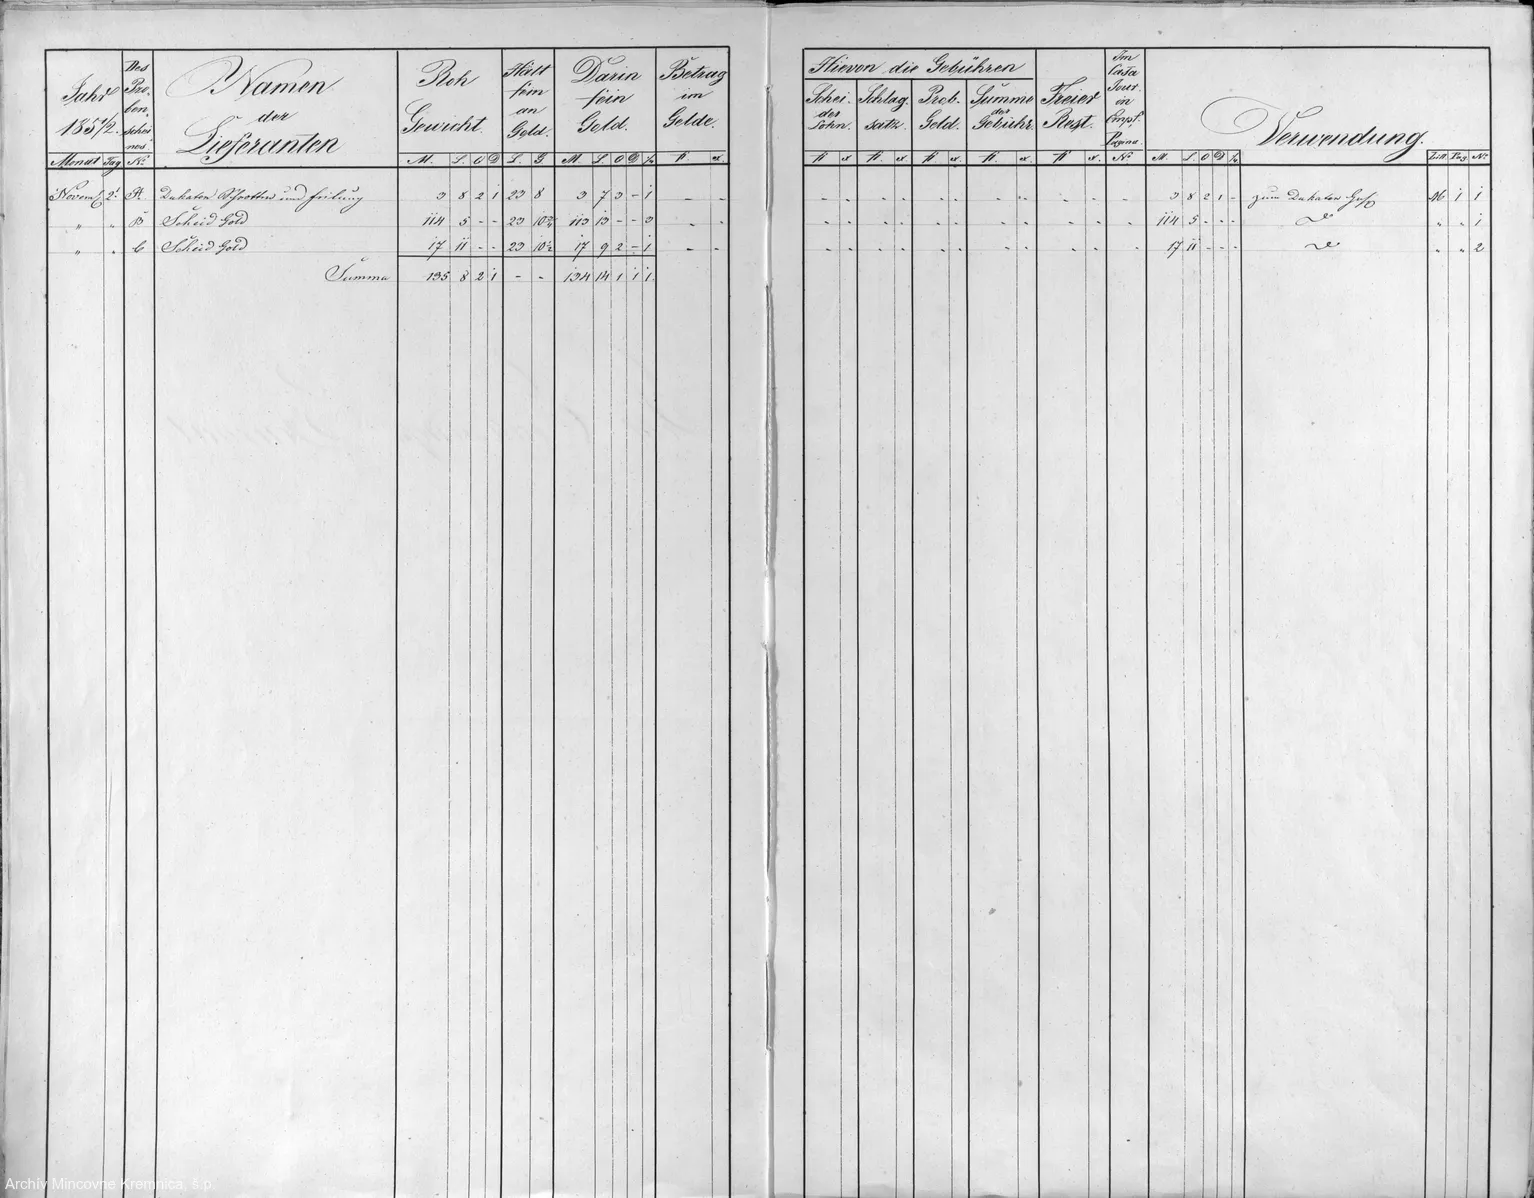 Jahr 1851/2.
Monat Tag
Des Proben-Scheines
No
Namen der Lieferanten
Roh Gewicht.
M. L. Q D
Hält fein an Gold.
L. G
Darin fein Gold.
M. L Q D
Betrag im Gelde.
fl. x.
Hievon die Gebühren
Schei- des Lohn.
fl x
Schlag- satz.
fl. x.
Prob- Geld.
fl. x.
Summe der Gebühr.
fl. x.
Freier Rest.
fl x.
Im Cassa Jour. in Empf. Pagina.
No
M. L. Q D
Verwendung.
Litt. Pag. No
Novemb 21 A. Dukaten Schrotten und feilung 3 8 2 1 23 8 3 7 3 - 1 - - - - - - - - - - - - - 3 8 2 1 - zum Dukaten Guß 46 1 1
" " B Scheid Gold 114 5 - - 23 10¾ 113 13 - - 3 - - - - - - - - - - - - - 114 5 - - - do " " 1
" " C Scheid Gold 17 11 - - 23 10½ 17 9 2 - 1 - - - - - - - - - - - - - 17 11 - - - do " " 2
Summa 135 8 2 1 - - 134 14 1 1 1.
Archív Mincovne Kremnica, š.p.